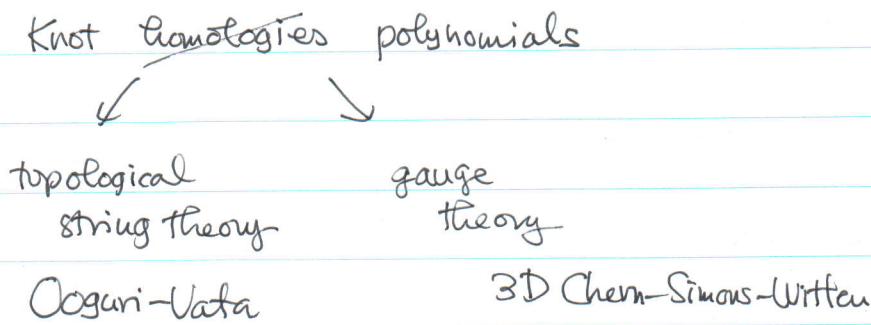 Knot homologies polynomials
topological gauge
string theory theory
Ooguri-Vafa 3D Chern-Simons-Witten